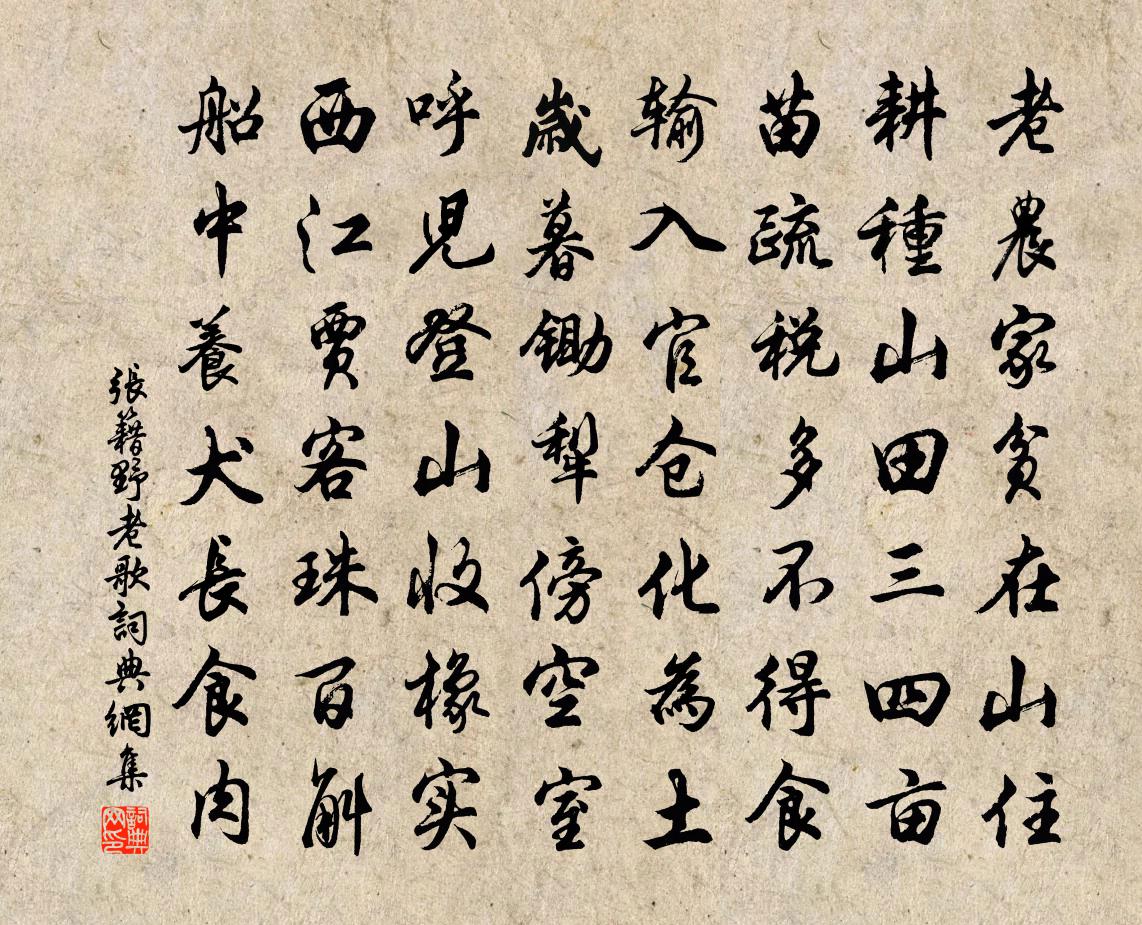 老農家貧在山住
耕種山田三四亩
苗疏税多不得食
输入官仓化為土
歳暮鋤犁傍空室
呼児登山收橡实
西江賈客珠百斛
船中養犬長食肉
張籍野老歌詞典網集
詞典网印